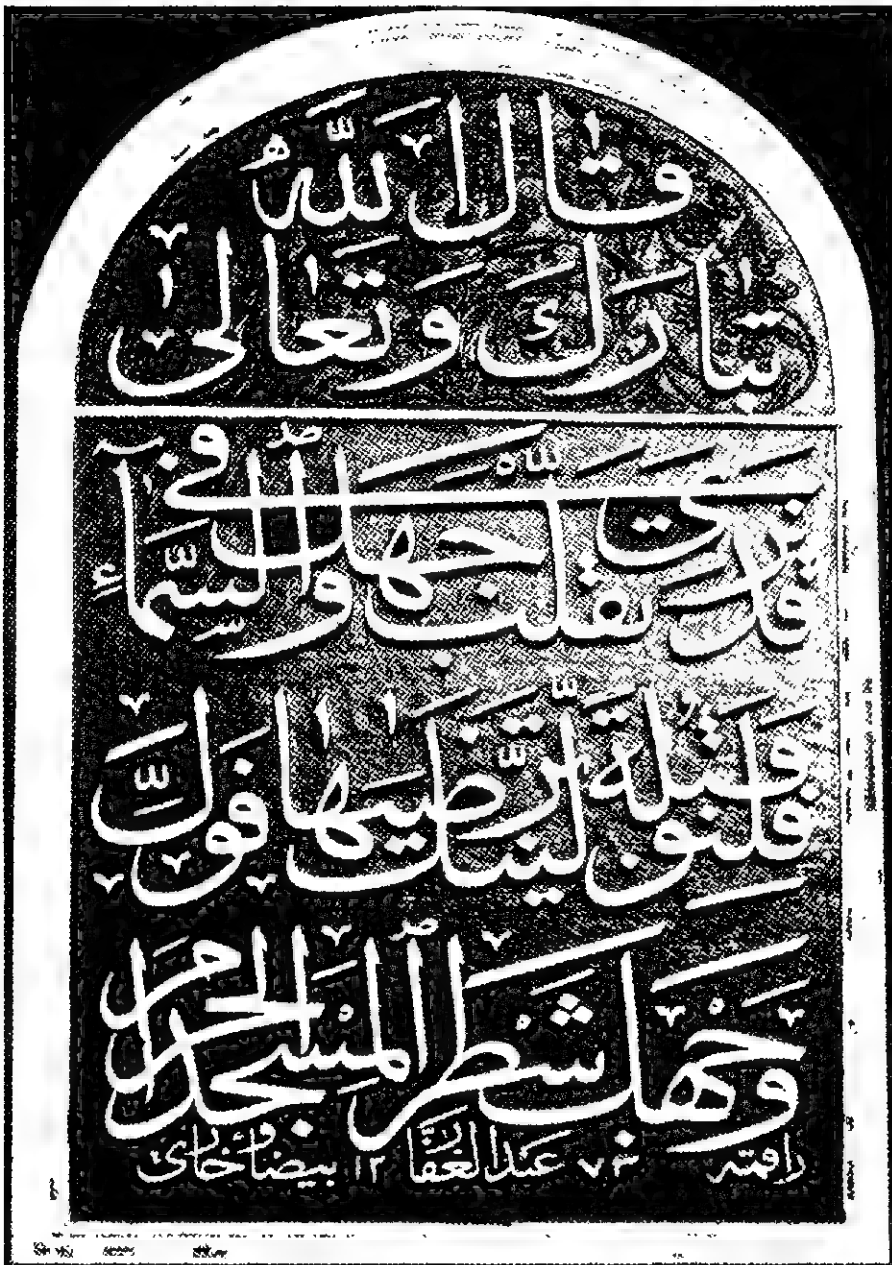 قَالَ اللّٰهُ
تَبَارَكَ وَتَعَالٰى
قَدْ نَرٰى تَقَلُّبَ وَجْهِكَ فِي السَّمَآءِ
فَلَنُوَلِّيَنَّكَ قِبْلَةً تَرْضٰىهَا فَوَلِّ
وَجْهَكَ شَطْرَ الْمَسْجِدِ الْحَرَامِ
عبدالغفار